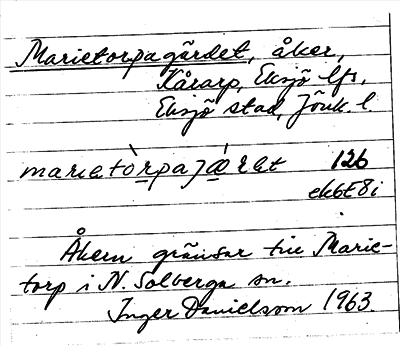 Marietorpagärdet, åker,
Kårarp, Eksjö lfs,
Eksjö stad, Jönk. l
marɩetò̱rpajǽ̱rɛt 126
ek6E8i
Åkern gränsar till Marie-
torp i N. Solberga sn.
Inger Danielsson 1963.